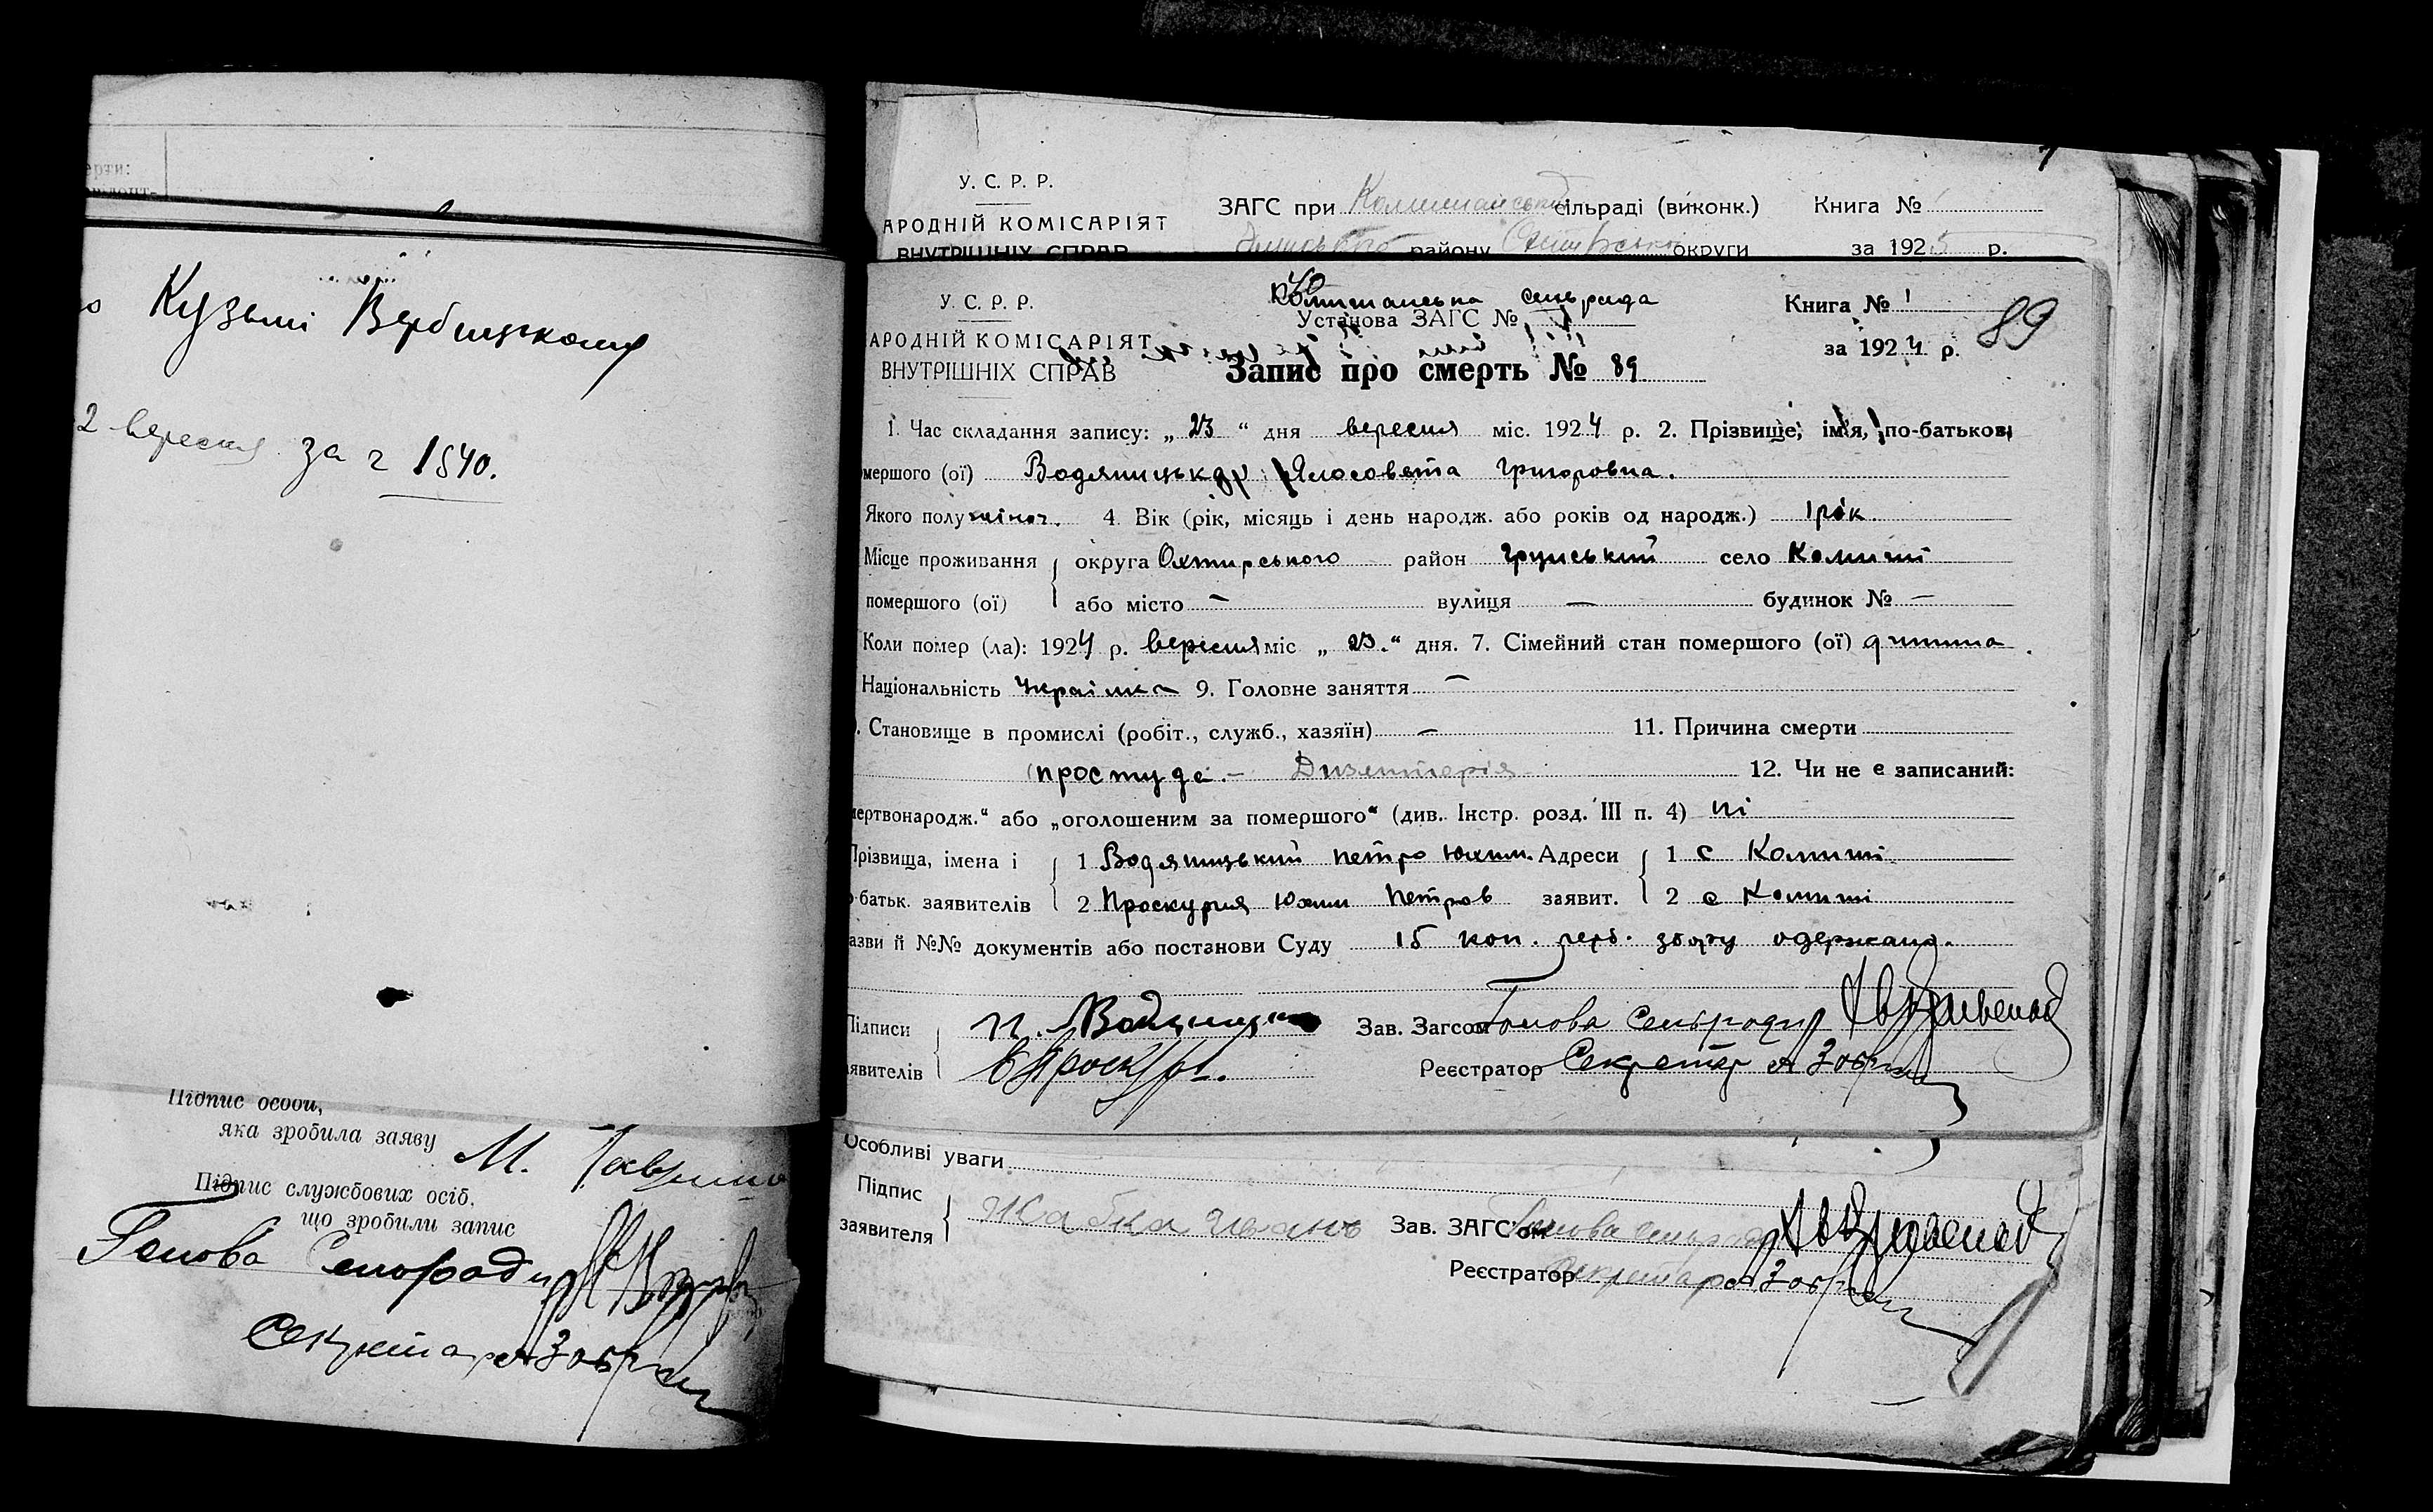 ерти:
Кузьмі Вербицкому
2 вересня за ч 1540.
Підпис особи,
яка зробила заяву М.
Підпис службових осіб,
що зробили запис
Голова Сельради
Секретар
У. С. Р. Р.
АРОДНІЙ КОМІСАРІЯТ
ВНУТРІШНІХ СПРАВ
ЗАГС при Комишанській сільраді (виконк.) Книга №
району округи за 1925 р.
У. С. Р. Р.
АРОДНІЙ КОМІСАРІЯТ
ВНУТРІШНІХ СПРАВ
Комишанська Сельрада
Установа ЗАГС №
Книга № 1
за 1924 р.
89
Запис про смерть № 89
1. Час складання запису: „ 23 “ дня вересня міс. 1924 р. 2. Прізвище, ім'я, по-батькові
мершого (ої) Водяницькду Ялосовета Григоровна.
Якого полу жіноч. 4. Вік (рік, місяць і день народж. або років од народж.) 1 рік.
Місце проживання округа Охтирського район Грунський село Комиші
помершого (ої) або місто — вулиця — будинок № —
Коли помер (ла): 1924 р. вересня міс „ 23.“ дня. 7. Сімейний стан помершого (ої) дитина.
Національність Украінка 9. Головне заняття —
. Становище в промислі (робіт., служб., хазяїн) — 11. Причина смерти
простуда. — Дизентерія 12. Чи не є записаний:
мертвонародж.“ або „оголошеним за помершого“ (див. Інстр. розд. III п. 4) ні
Прізвища, імена і 1 Водяницький Петро Юхим. Адреси 1 с Комиші
о-батьк. заявителів 2 Проскурня Юхим Петров заявит. 2 с Комиші
азви й №№ документів або постанови Суду 15 коп. герб. збору одержано.
Підписи п. Водяницк Зав. Загсом Голова Сельради
явителів Реєстратор Секретар
Особливі уваги
Підпис
заявителя Жабка Іванъ Зав. ЗАГСом Голова сельради
Реєстратор Секретар